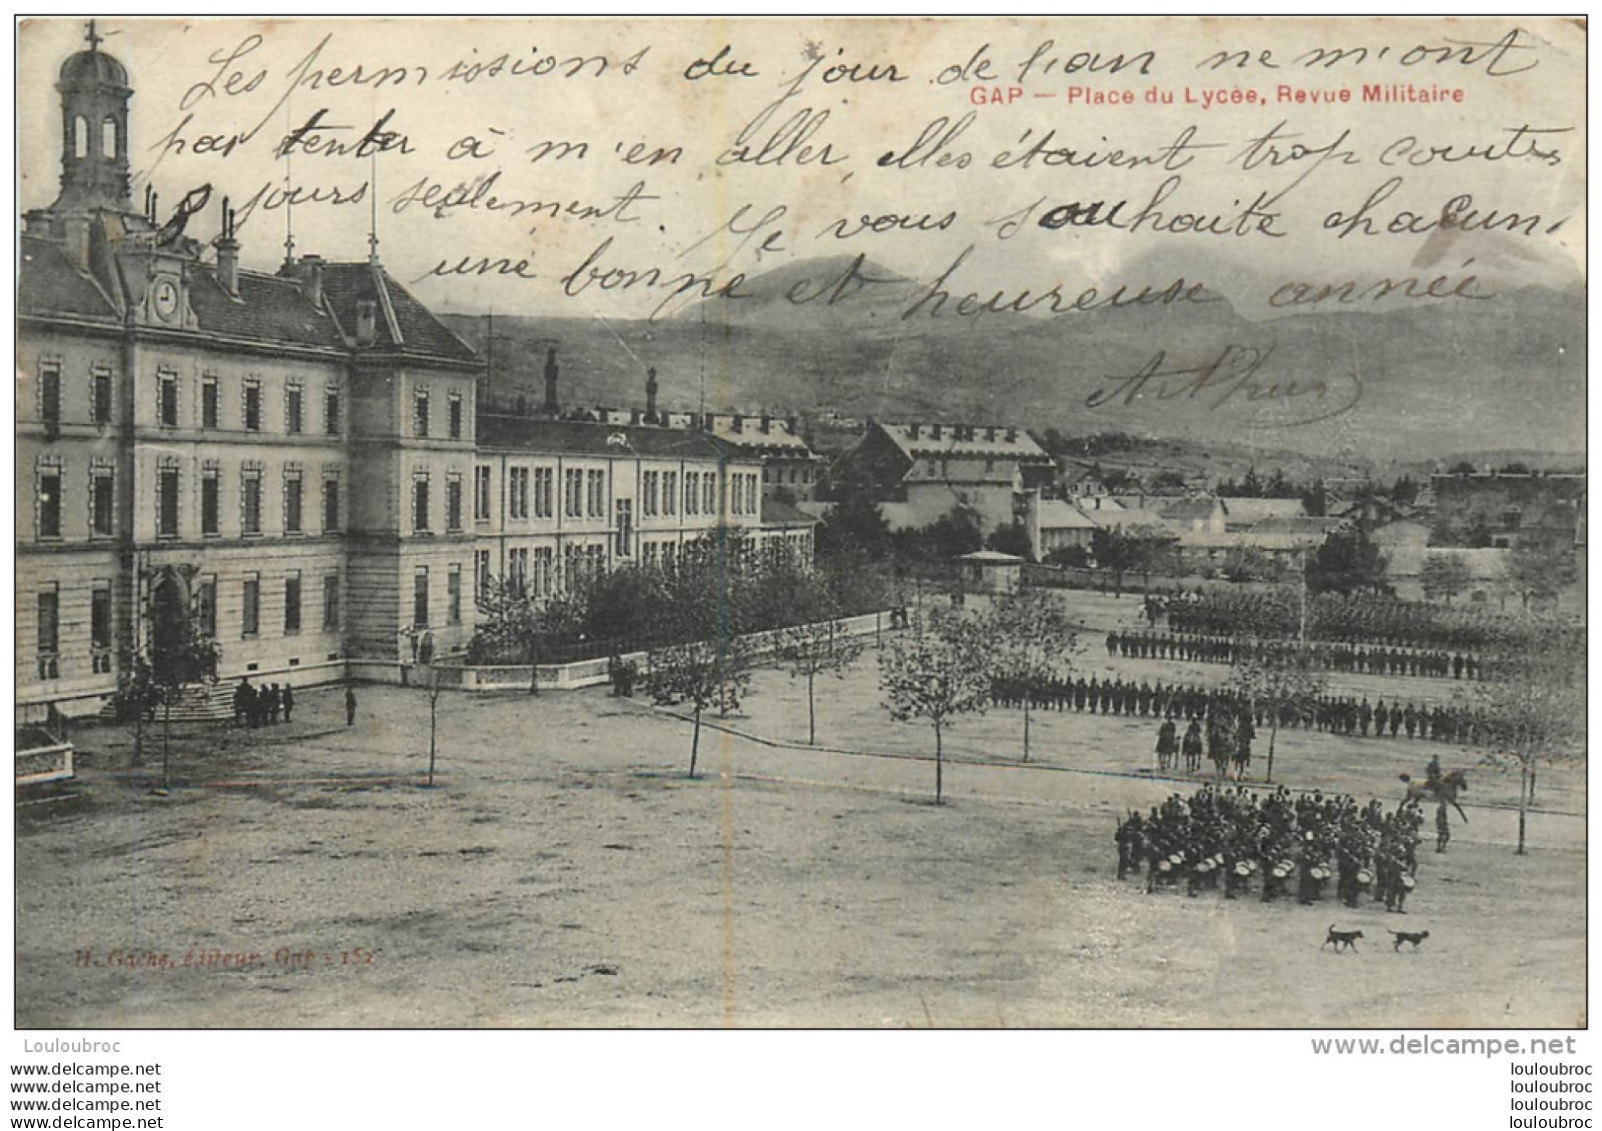 Les permissions du jour de l'an ne m'ont
GAP — Place du Lycée, Revue Militaire
pas tenter à m'en aller, elles étaient trop courtes
8 jours seulement. Je vous souhaite chacun,
une bonne et heureuse année
Arthur
H. Gache, éditeur, Gap - 152
Louloubroc
www.delcampe.net
www.delcampe.net
www.delcampe.net
www.delcampe.net
www.delcampe.net
louloubroc
louloubroc
louloubroc
louloubroc